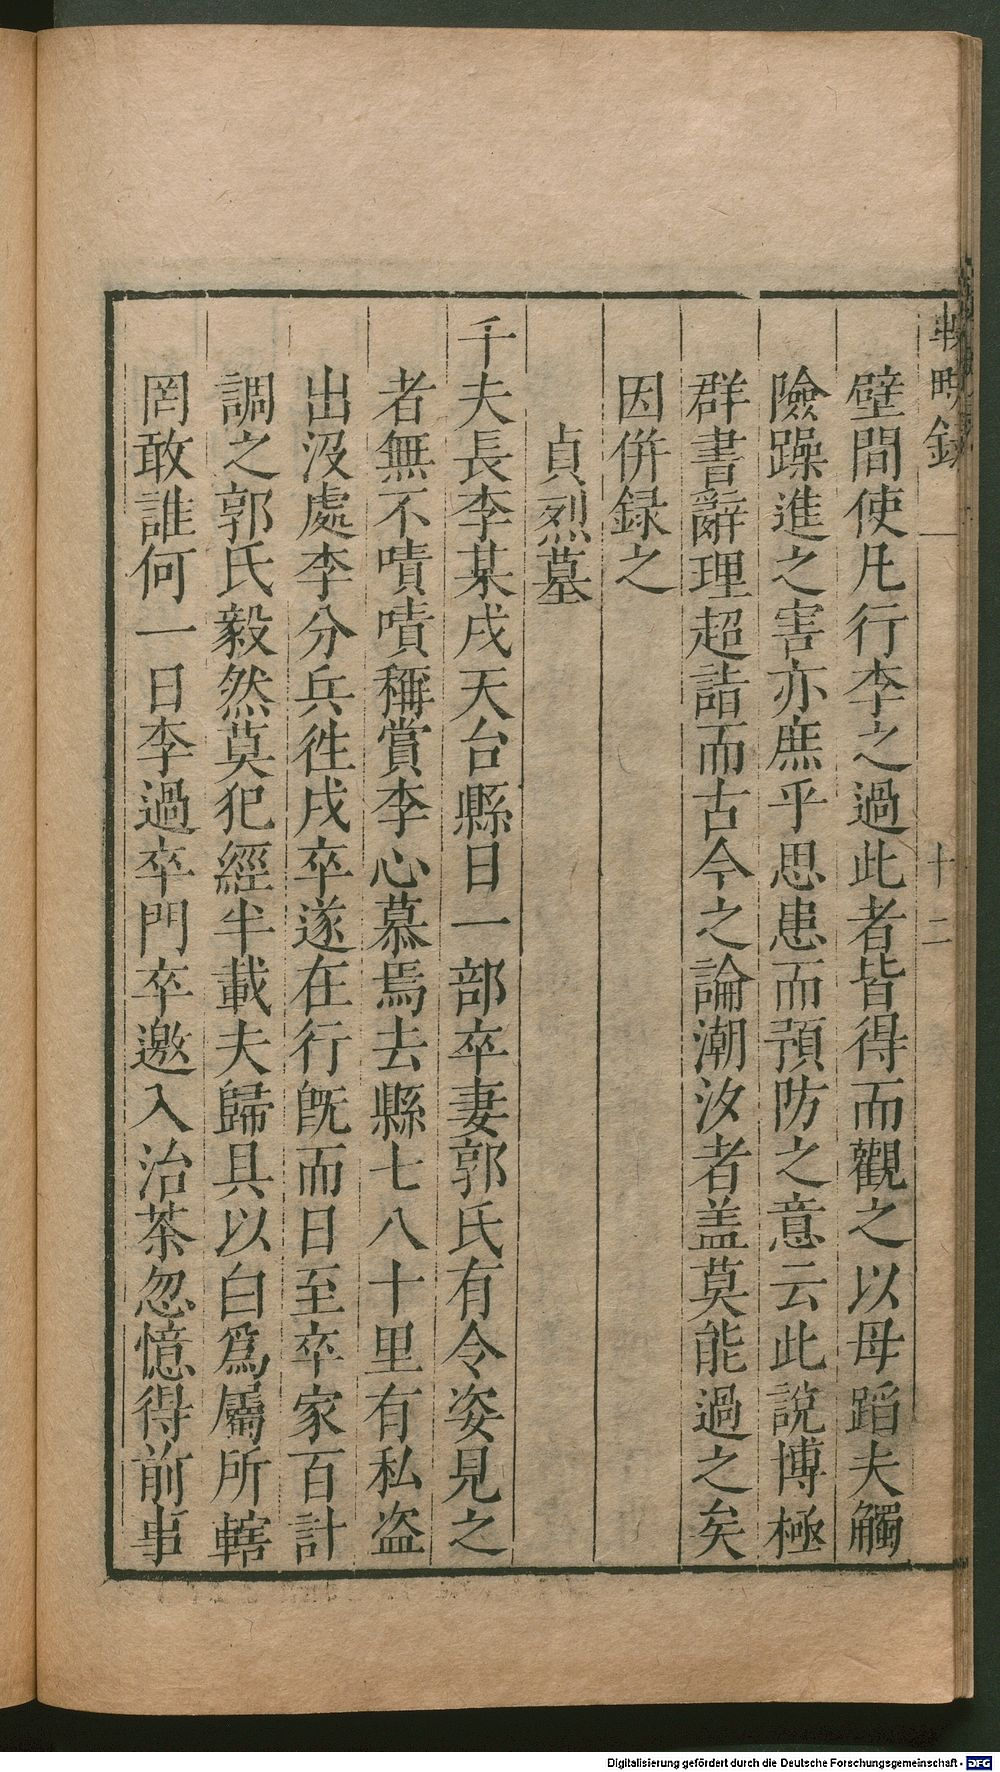 壁間使凡行李之過此者皆得而觀之以毋蹈夫觸
險躁進之害亦庶乎思患而預防之意云此說博極
群書辭理超詣而古今之論潮汐者盖莫能過之矣
因併録之
貞烈墓
千夫長李某戍天台縣日一部卒妻郭氏有令姿見之
者無不嘖嘖稱賞李心慕焉去縣七八十里有私盗
出没處李分兵徃戍卒遂在行旣而日至卒家百計
調之郭氏毅然莫犯經半載夫歸具以白爲屬所轄
罔敢誰何一日李過卒門卒邀入治茶忽憶得前事
十二
Digitalisierung gefördert durch die Deutsche Forschungsgemeinschaft - DFG